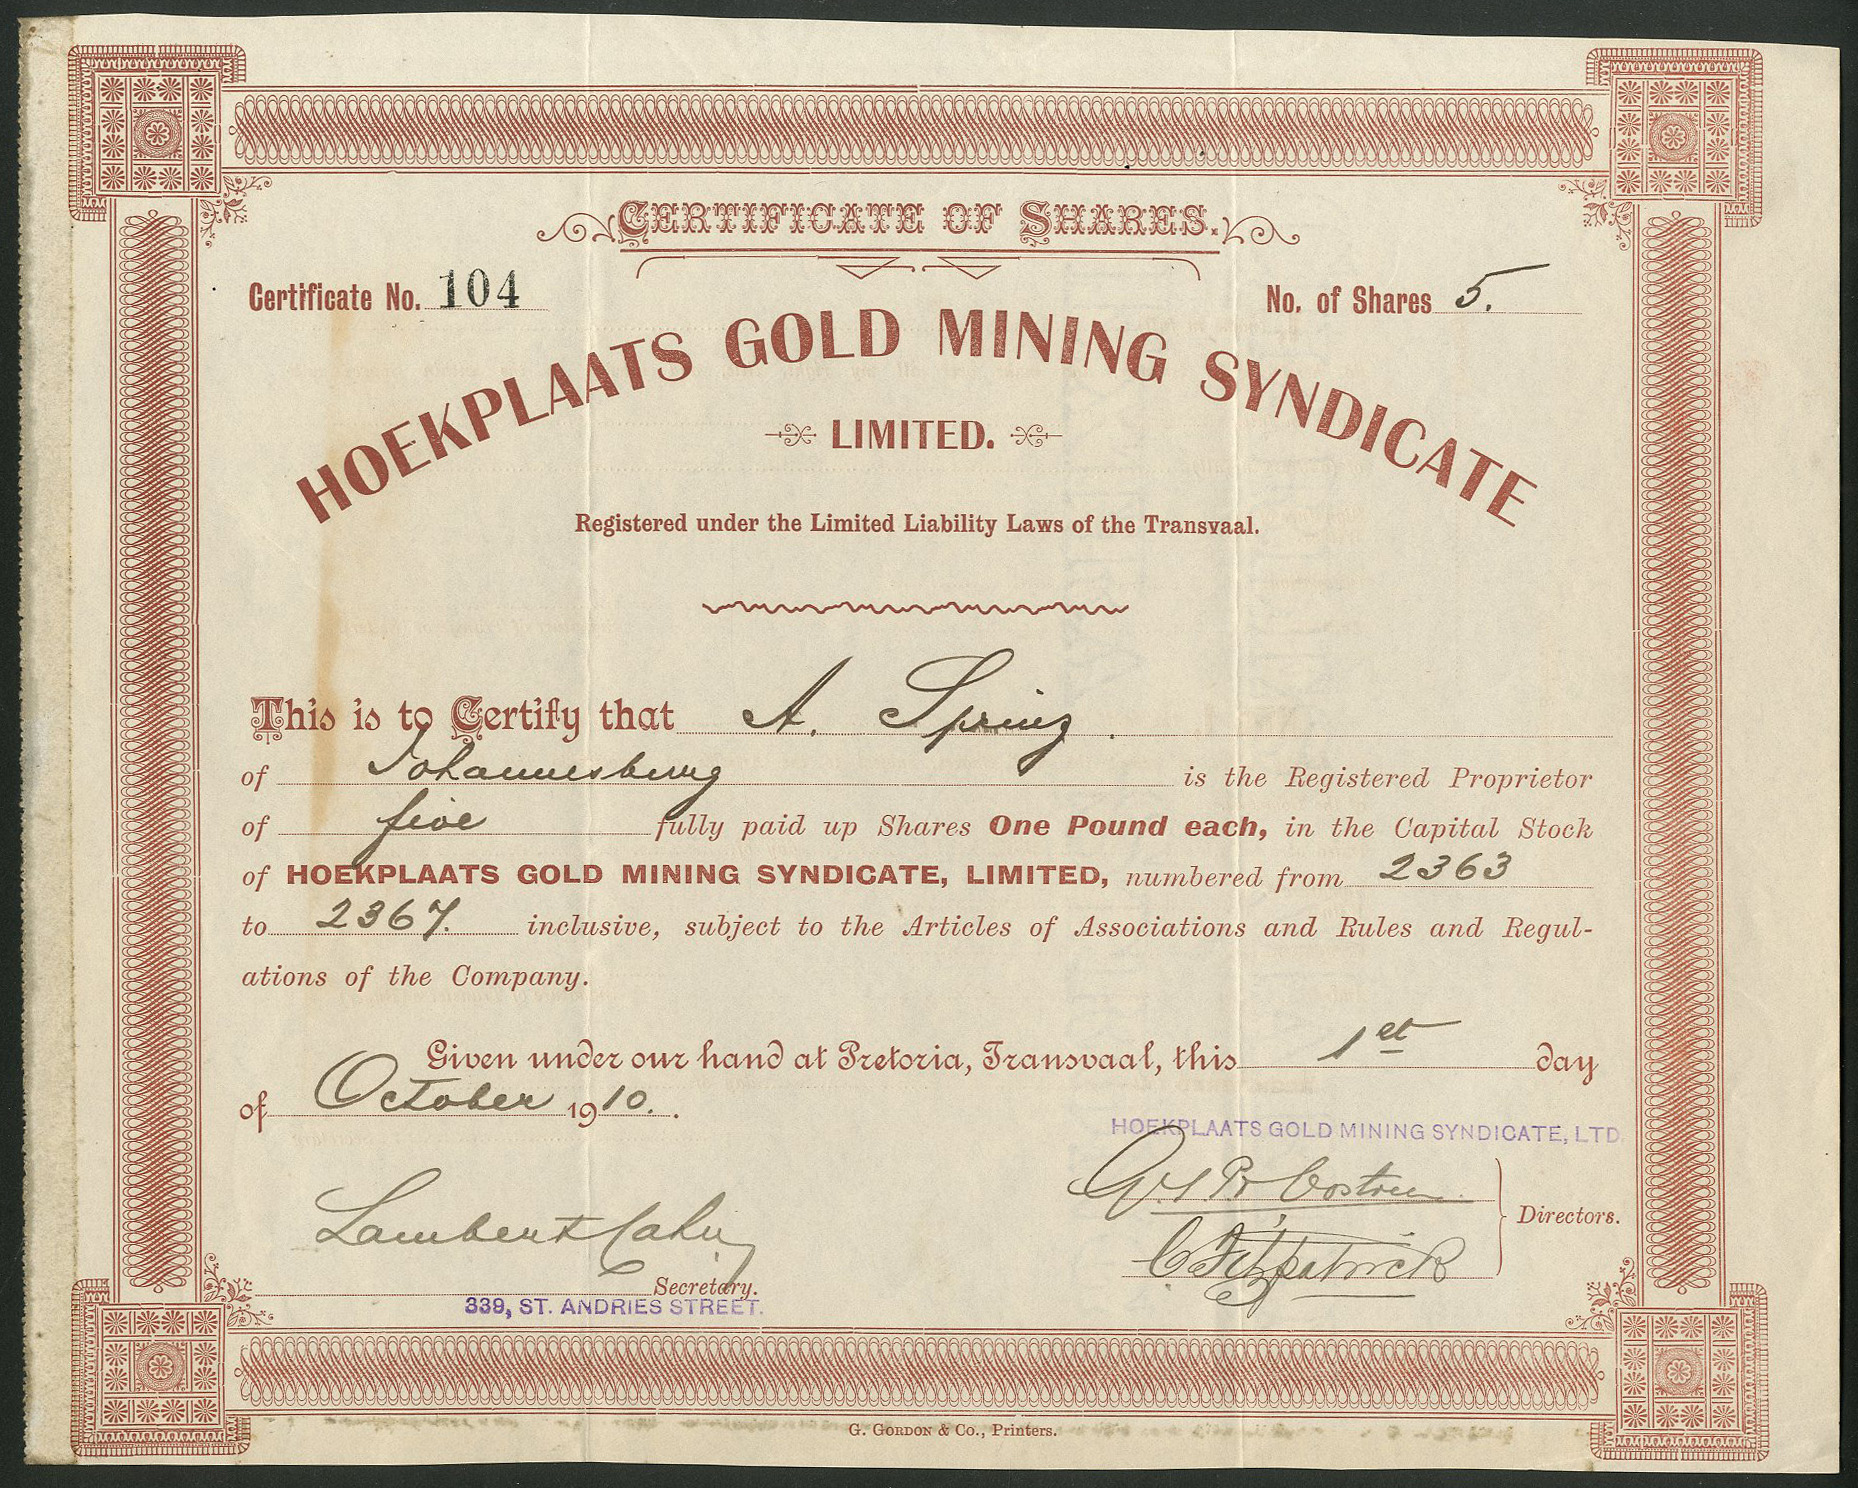 CERTIFICATE OF SHARES.
Certificate No. 104
No. of Shares 5.
HOEKPLAATS GOLD MINING SYNDICATE
LIMITED.
Registered under the Limited Liability Laws of the Transvaal.
This is to Certify that A.
of Johannesburg is the Registered Proprietor
of five fully paid up Shares One Pound each, in the Capital Stock
of HOEKPLAATS GOLD MINING SYNDICATE, LIMITED, numbered from 2363
to 2367. inclusive, subject to the Articles of Associations and Rules and Regul-
ations of the Company.
Given under our hand at Pretoria, Transvaal, this 1st day
of October 1910.
HOEKPLAATS GOLD MINING SYNDICATE, LTD
C Fitzpatrick
Directors.
Lambert
Secretary.
339, ST. ANDRIES STREET.
G. GORDON & Co., Printers.